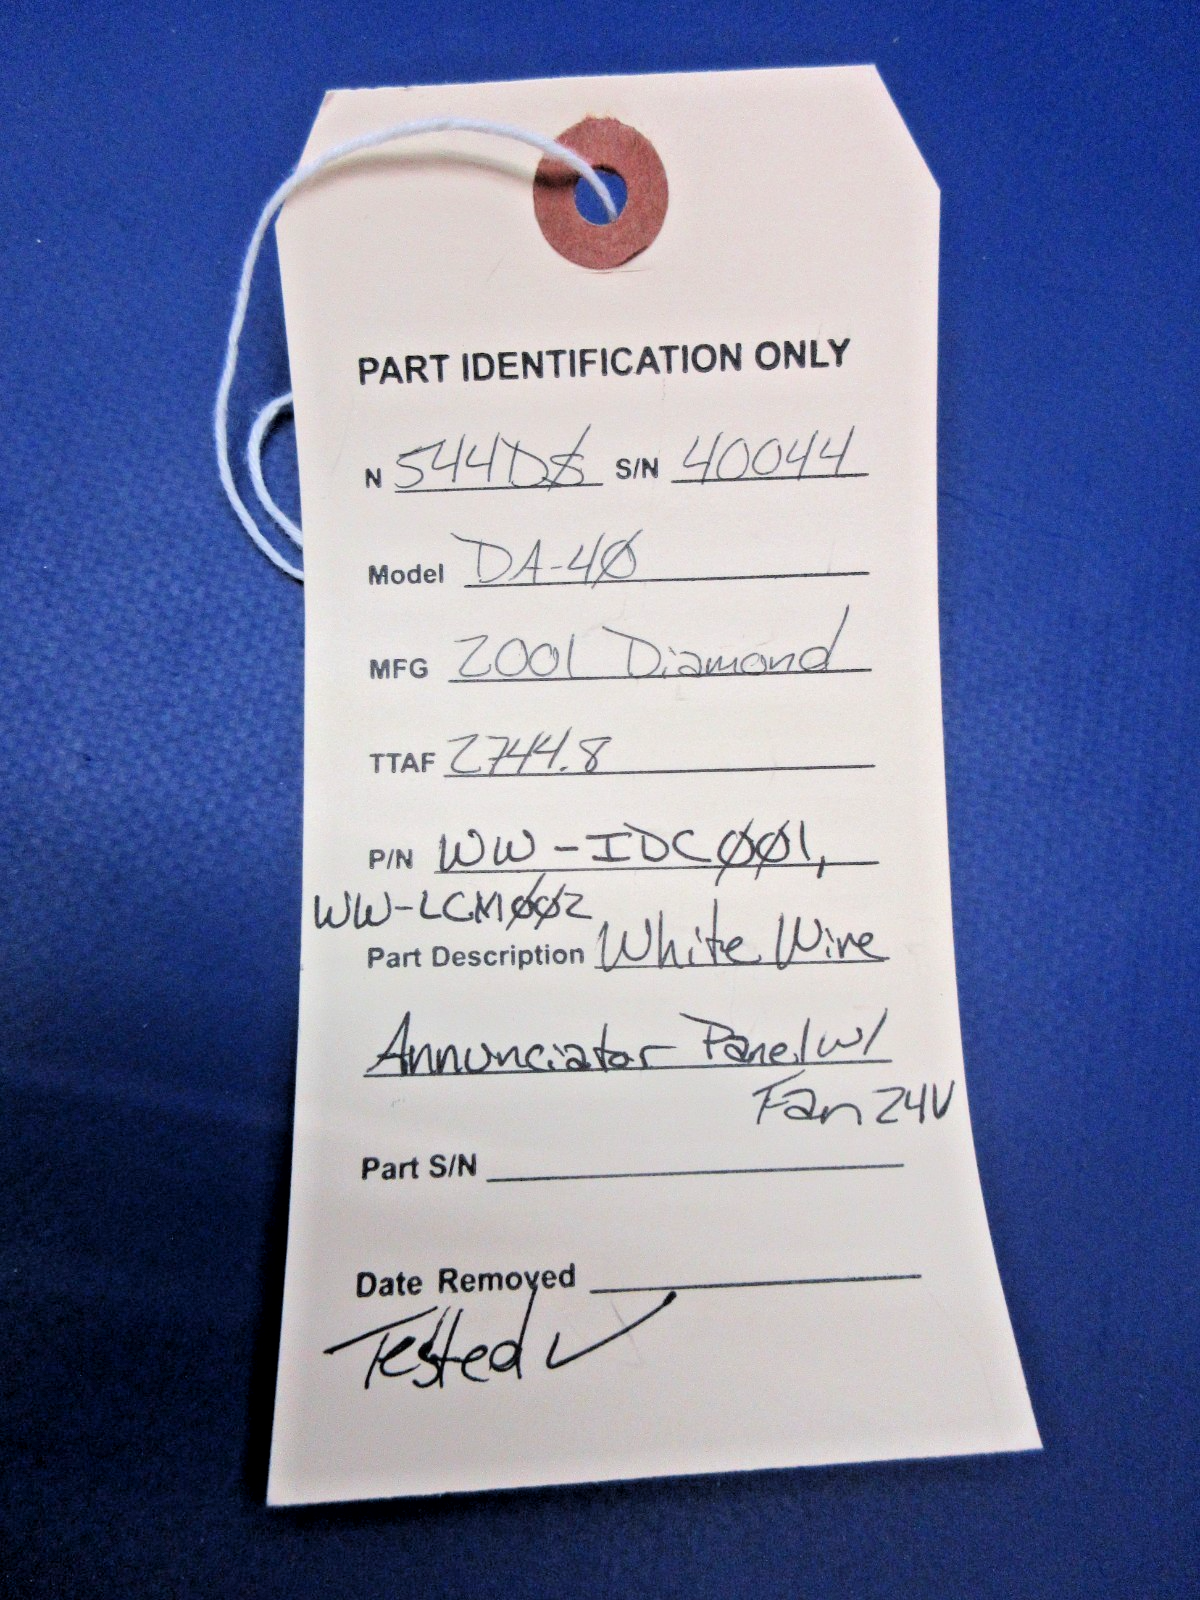 PART IDENTIFICATION ONLY
N 544DS S/N 40044
Model DA-4Ø
MFG 2001 Diamond
TTAF 2744.8
P/N WW-IDCØØ1,
WW-LCMØØ2
Part Description White Wire
Annunciator Panel w/
Fan 24V
Part S/N
Date Removed
Tested ✓